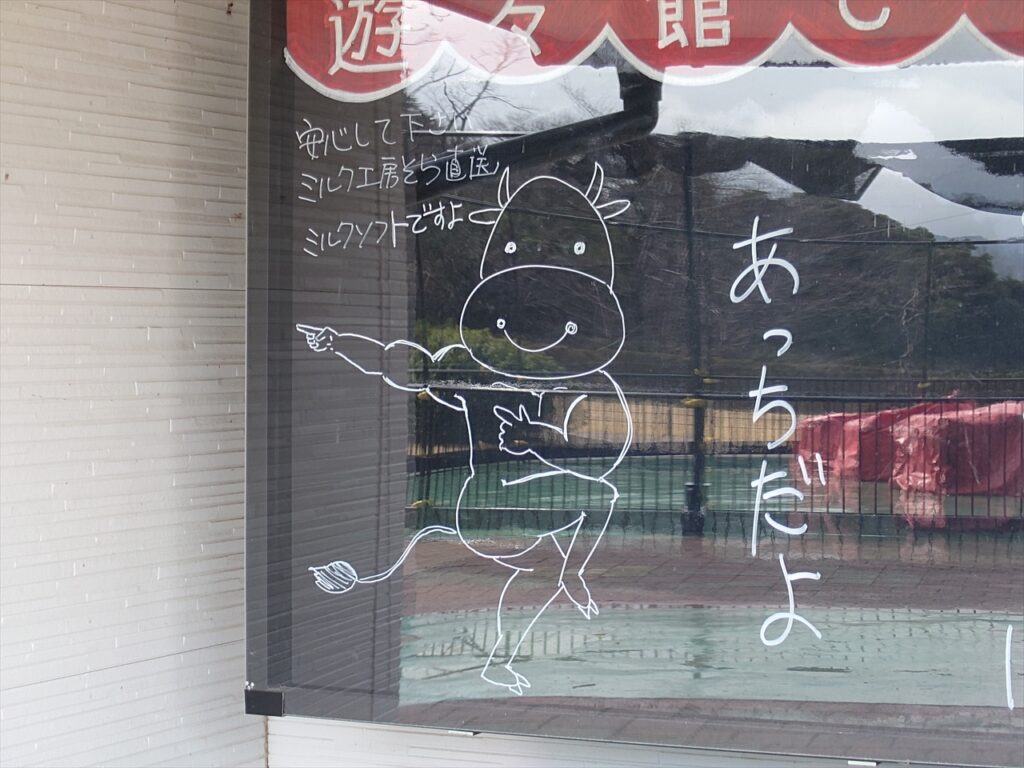 遊々館で
安心して下さい
ミルク工房そら直送
ミルクソフトですよ
あっちだよ